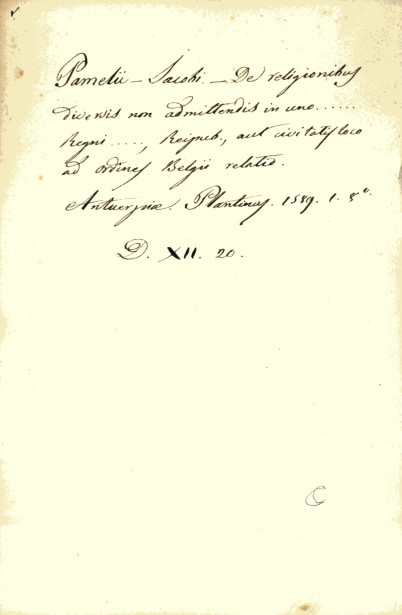 Pamelii - Jacobi. - De religionibus
diversis non admittendis in uno ......
Regni ....., Reipub., aut civitatis loco
ad ordines Belgii relatio.
Antuerpiæ. Plantinus. 1589. 1. 8°.
D. XII. 20.